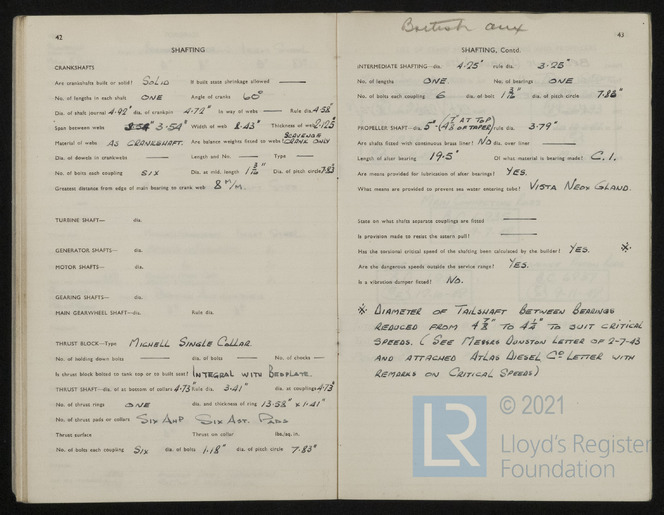 42
SHAFTING
CRANKSHAFTS
Are crankshafts built or solid? SOLID If built state shrinkage allowed
No. of lengths in each shaft ONE Angle of cranks 60°
Dia. of shaft journal 4·92" dia. of crankpin 4·72" In way of webs Rule dia. 4·58"
Span between webs 3·54" Width of web 8·43" Thickness of web 2·125"
Material of webs AS CRANKSHAFT. Are balance weights fitted to webs? SCAVENGE CRANK ONLY
Dia. of dowels in crankwebs Length and No. Type
No. of bolts each coupling SIX Dia. at mid. length Dia. of pitch circle 7·83"
Greatest distance from edge of main bearing to crank web 8 M/M.
TURBINE SHAFT— dia.
GENERATOR SHAFTS— dia.
MOTOR SHAFTS— dia.
GEARING SHAFTS— dia.
MAIN GEARWHEEL SHAFT—dia. Rule dia.
THRUST BLOCK—Type MICHELL SINGLE COLLAR
No. of holding down bolts dia. of bolts No. of chocks
Is thrust block bolted to tank top or to built seat? INTEGRAL WITH BEDPLATE.
THRUST SHAFT—dia. of at bottom of collars 4·73" Rule dia. 3·41" dia. at couplings 4·73"
No. of thrust rings ONE dia. and thickness of ring 13·58" x 1·41"
No. of thrust pads or collars SIX AHD SIX AST. PADS
Thrust surface Thrust on collar lbs./sq. in.
No. of bolts each coupling SIX dia. of bolts 1·18" dia. of pitch circle 7·83"
British aux
43
SHAFTING, Contd.
INTERMEDIATE SHAFTING—dia. 4·25" rule dia. 3·25"
No. of lengths ONE No. of bearings ONE
No. of bolts each coupling 6 dia. of bolt dia. of pitch circle 7·88"
PROPELLER SHAFT—dia. 5" (4 7/8" AT TOP OF TAPER) rule dia. 3·79"
Are shafts fitted with continuous brass liner? NO dia. over liner
Length of after bearing 19·5" Of what material is bearing made? C.I.
Are means provided for lubrication of after bearings? YES.
What means are provided to prevent sea water entering tube? VISTA NEOX GLAND.
State on what shafts separate couplings are fitted
Is provision made to resist the astern pull?
Has the torsional critical speed of the shafting been calculated by the builder? YES. ※
Are the dangerous speeds outside the service range? YES.
Is a vibration damper fitted? NO.
※ DIAMETER OF TAILSHAFT BETWEEN BEARINGS
REDUCED FROM 4 7/8" TO 4 1/2" TO SUIT CRITICAL
SPEEDS. (SEE MESSRS DUNSTON LETTER OF 2-7-43
AND ATTACHED ATLAS DIESEL Co LETTER WITH
REMARKS ON CRITICAL SPEEDS)
LR
© 2021
Lloyd's Register
Foundation